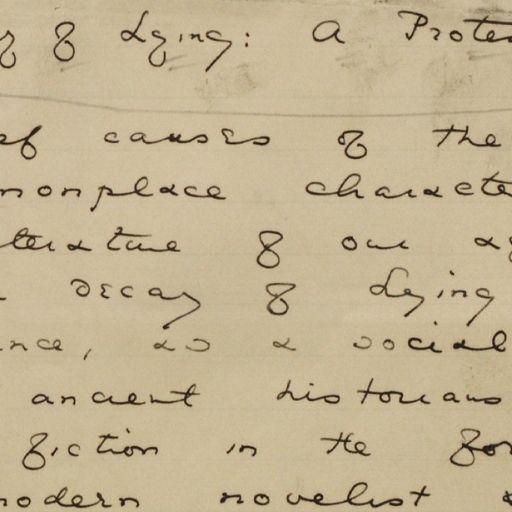 y of Lying: A Protes
ef causes of the
monplace characte
terature of our ag
decay of Lying
ence, as a social
ancient historians
fiction in the for
modern novelist